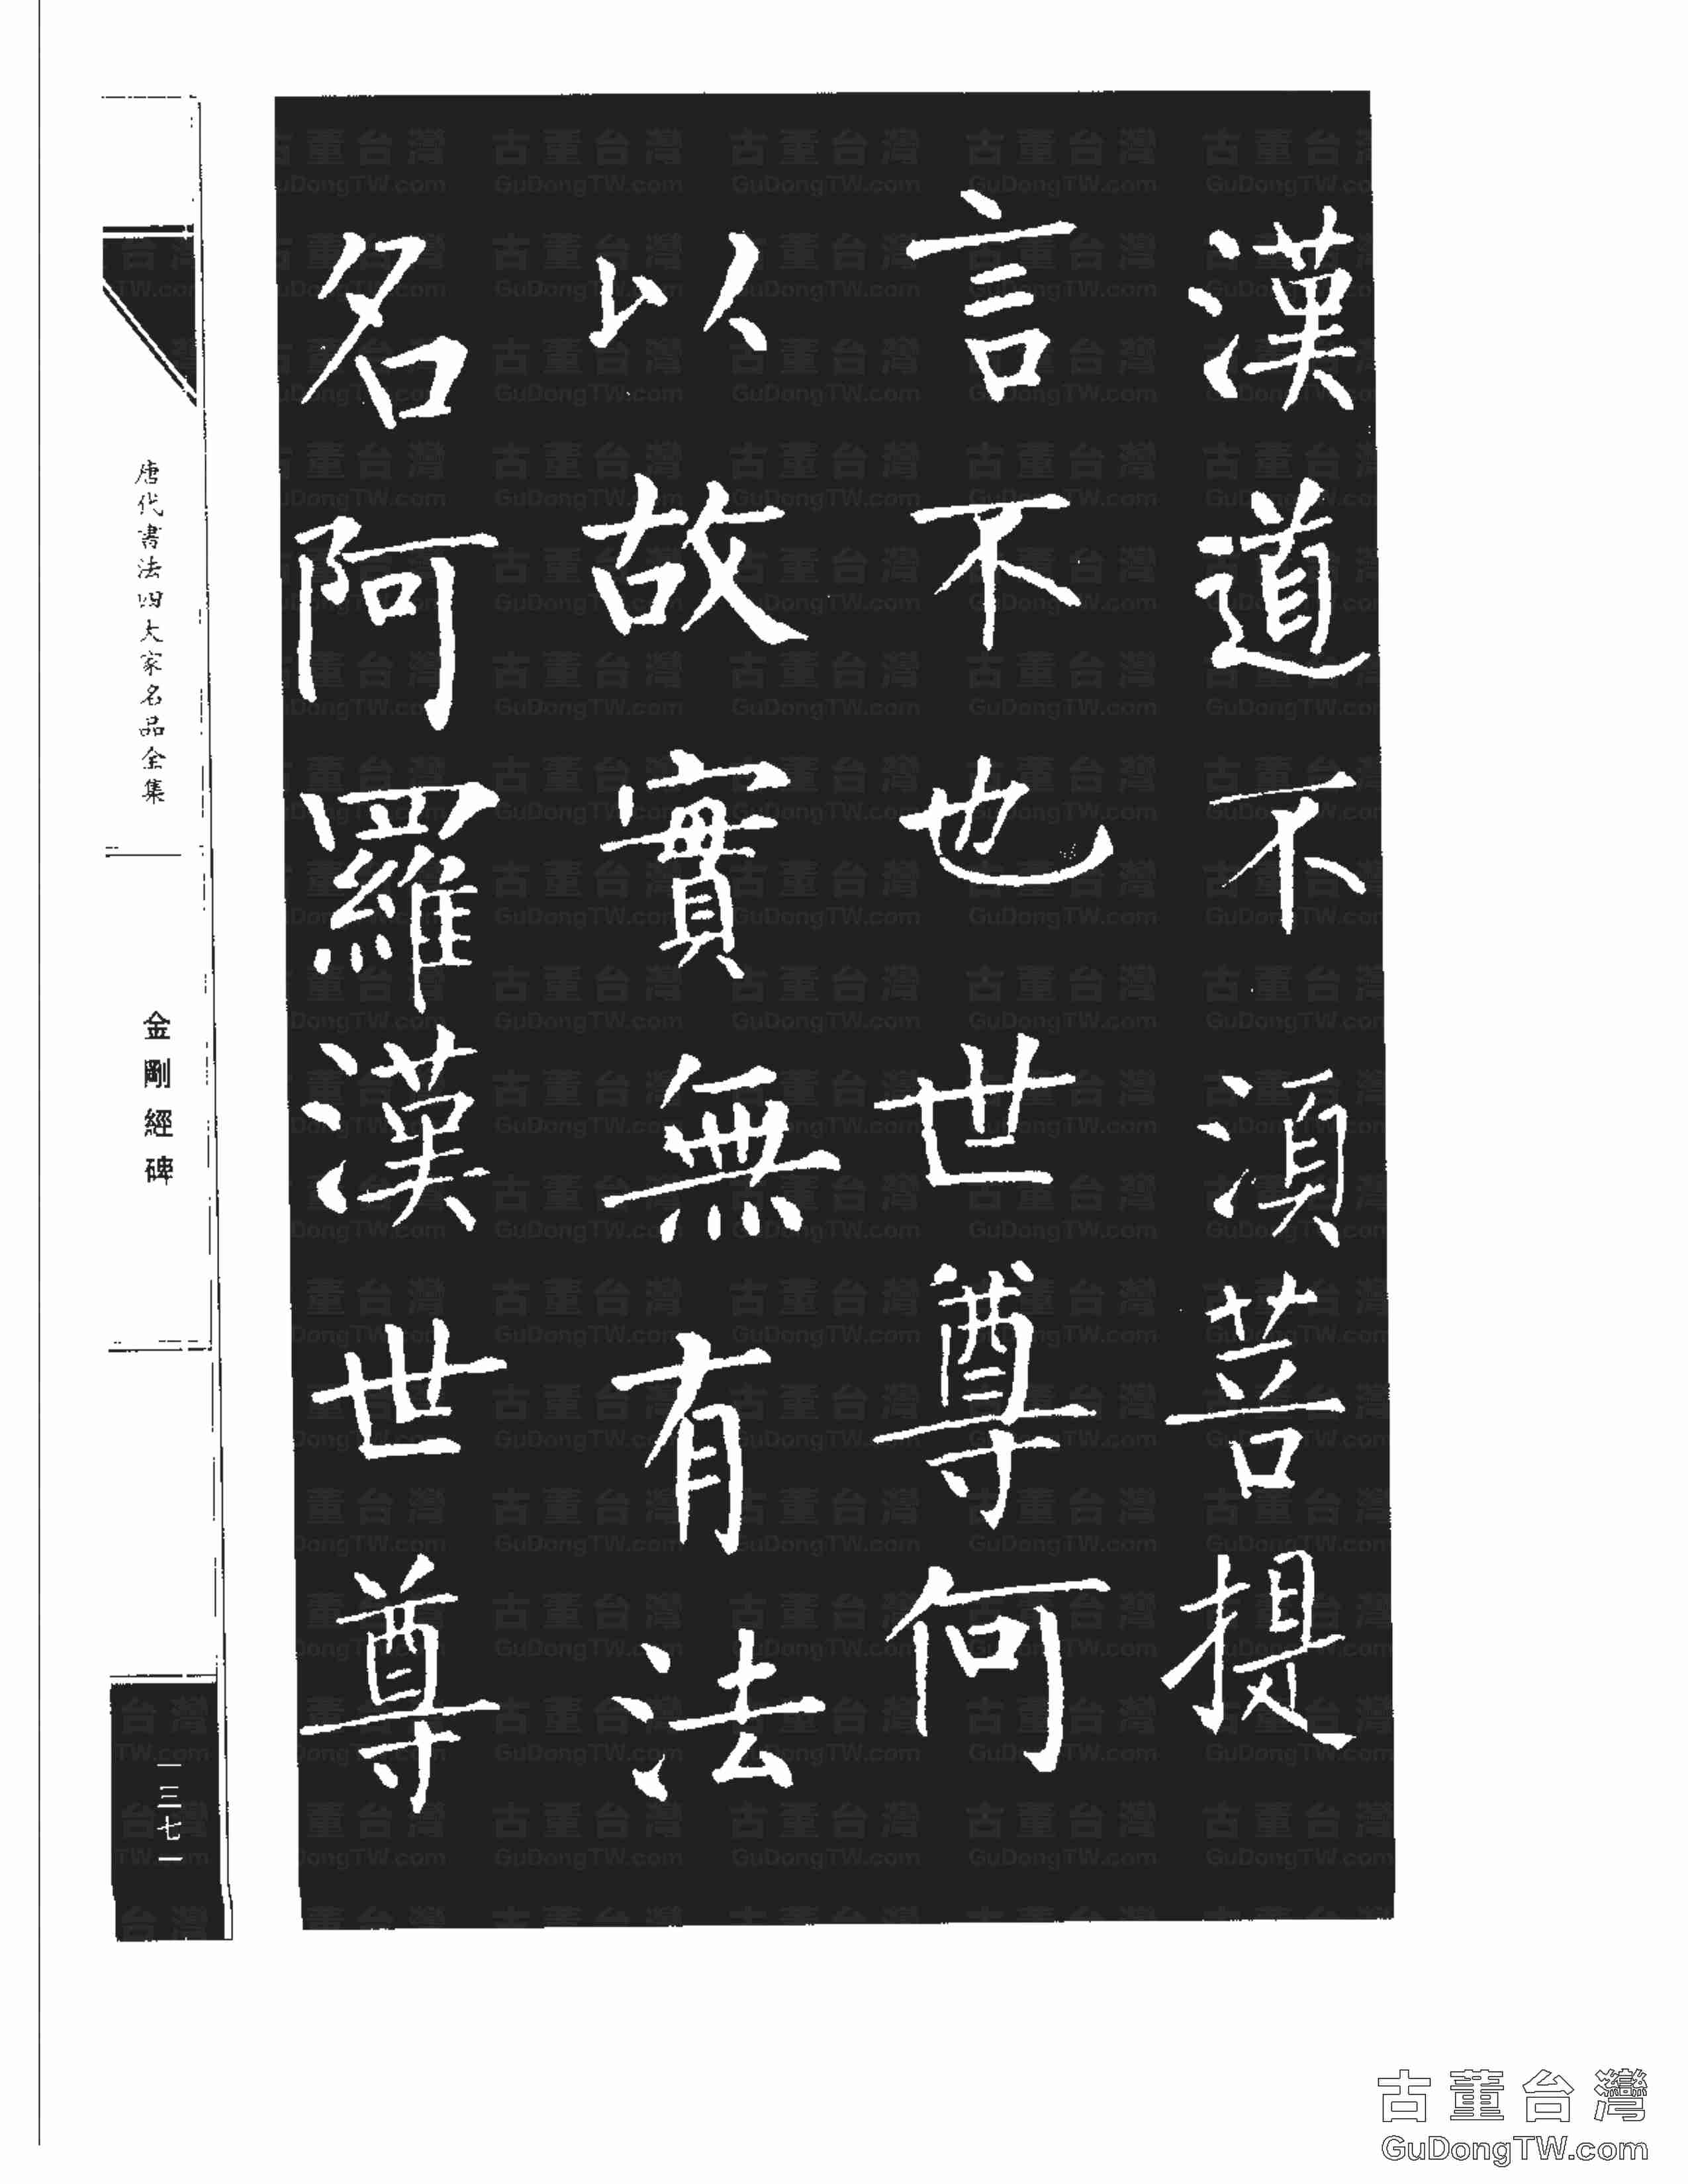 漢道不湏菩提
言不也世尊何
以故實無有法
名阿羅漢世尊
唐代書法四大家名品全集
金剛經碑
一三七一
古董台灣
GuDongTW.com